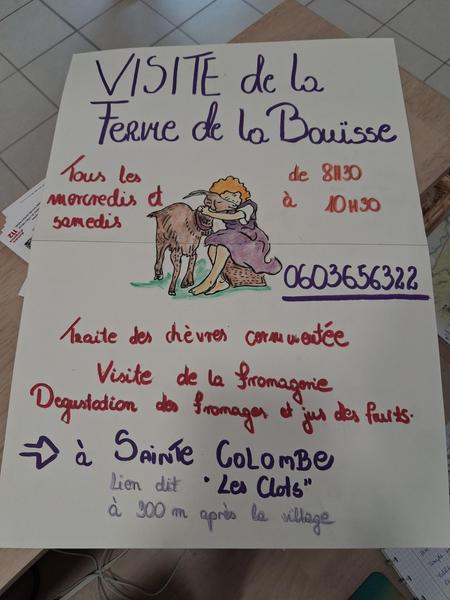 VISITE de la
Ferme de la Bouïsse
Tous les
mercredis et
samedis
de 8H30
à 10H30
0603656322
Traite des chèvres commentée
Visite de la fromagerie
Degustation des fromages et jus des fruits.
⇒ à SAINTE COLOMBE
Lien dit "Les Clots"
à 900 m après la village